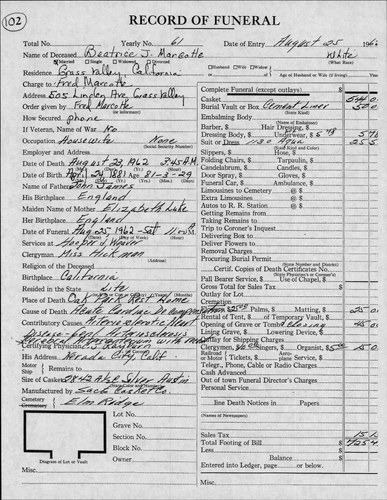 102
RECORD OF FUNERAL
Total No. Yearly No. 61 Date of Entry August 25 196
Name of Deceased Beatrice J. Marcotte White
Married Single Widowed Divorced (What Race)
Residence Grass Valley, California Husband Wife Widow
Age of Husband or Wife (if living)
Charge to Fred Marcotte
Address 505 Linden Ave Grass Valley
Order given by Fred Marcotte
How Secured phone
If Veteran, Name of War No
Occupation Housewife None
(Social Security Number)
Employer and Address
Date of Death August 23, 1962 3:45 AM
Date of Birth April 24 1881 Age 81-3-29
Name of Father John James
His Birthplace England
Maiden Name of Mother Elizabeth
Her Birthplace England
Date of Funeral Aug 25, 1962 - Sat
Services at Hooper & Weaver
Clergyman Miss Hickman
Religion of the Deceased
Birthplace California
Resided in the State Life
Place of Death Oak Park Rest Home
Cause of Death
Contributory Causes Arteriosclerotic Heart
Disease
Certifying Physician
His Address Nevada City, Calif
Motor
Rail Ship Remains to
Size of Casket Silver Austin
Manufactured by Casket Co.
Cemetery Elm Ridge
Lot No.
Grave No.
Section No.
Block No.
Owner
Diagram of Lot or Vault
Misc.
Complete Funeral (except outlays) $
Casket
Burial Vault or Box Cement Liner
(Name of Embalmer)
Embalming Body
Barber, $ Hair Dressing, $
Dressing Body, $ Underwear, $
Suit or Dress 1130 Aqua
(State Kind and Color)
Slippers, $ Hose, $
Folding Chairs, $ Tarpaulin, $
Candelabrum, $ Candles, $
Door Spray, $ Gloves, $
Funeral Car, $ Ambulance, $
Limousines to Cemetery @ $
Extra Limousines @ $
Autos to R. R. Station @ $
Getting Remains from
Taking Remains to
Trip to Coroner's Inquest
Delivering Box to
Deliver Flowers to
Removal Charges
Procuring Burial Permit
(State Permits and District)
Certif. Copies of Death Certificates No.
Pall Bearer Service, $ Use of Chapel, $
Gross Total for Sales Tax $
Outlay for Lot
Cremation
Flowers Palms, $ Matting, $
Rental of Tent, $ of Temporary Vault, $
Opening of Grave or Tomb Closing
Lining Grave, $ Lowering Device, $
Outlay for Shipping Charges
Clergymen, $ Singers, $ Organist, $
Railroad or Motor Tickets, $ Aeroplane Service, $
Telegr., Phone, Cable or Radio Charges
Cash Advanced
Out of town Funeral Director's Charges
Personal Service
line Death Notices in Papers
(Names of Newspapers)
Sales Tax
Total Footing of Bill $
Less
Balance $
Entered into Ledger, page or below.
Misc.